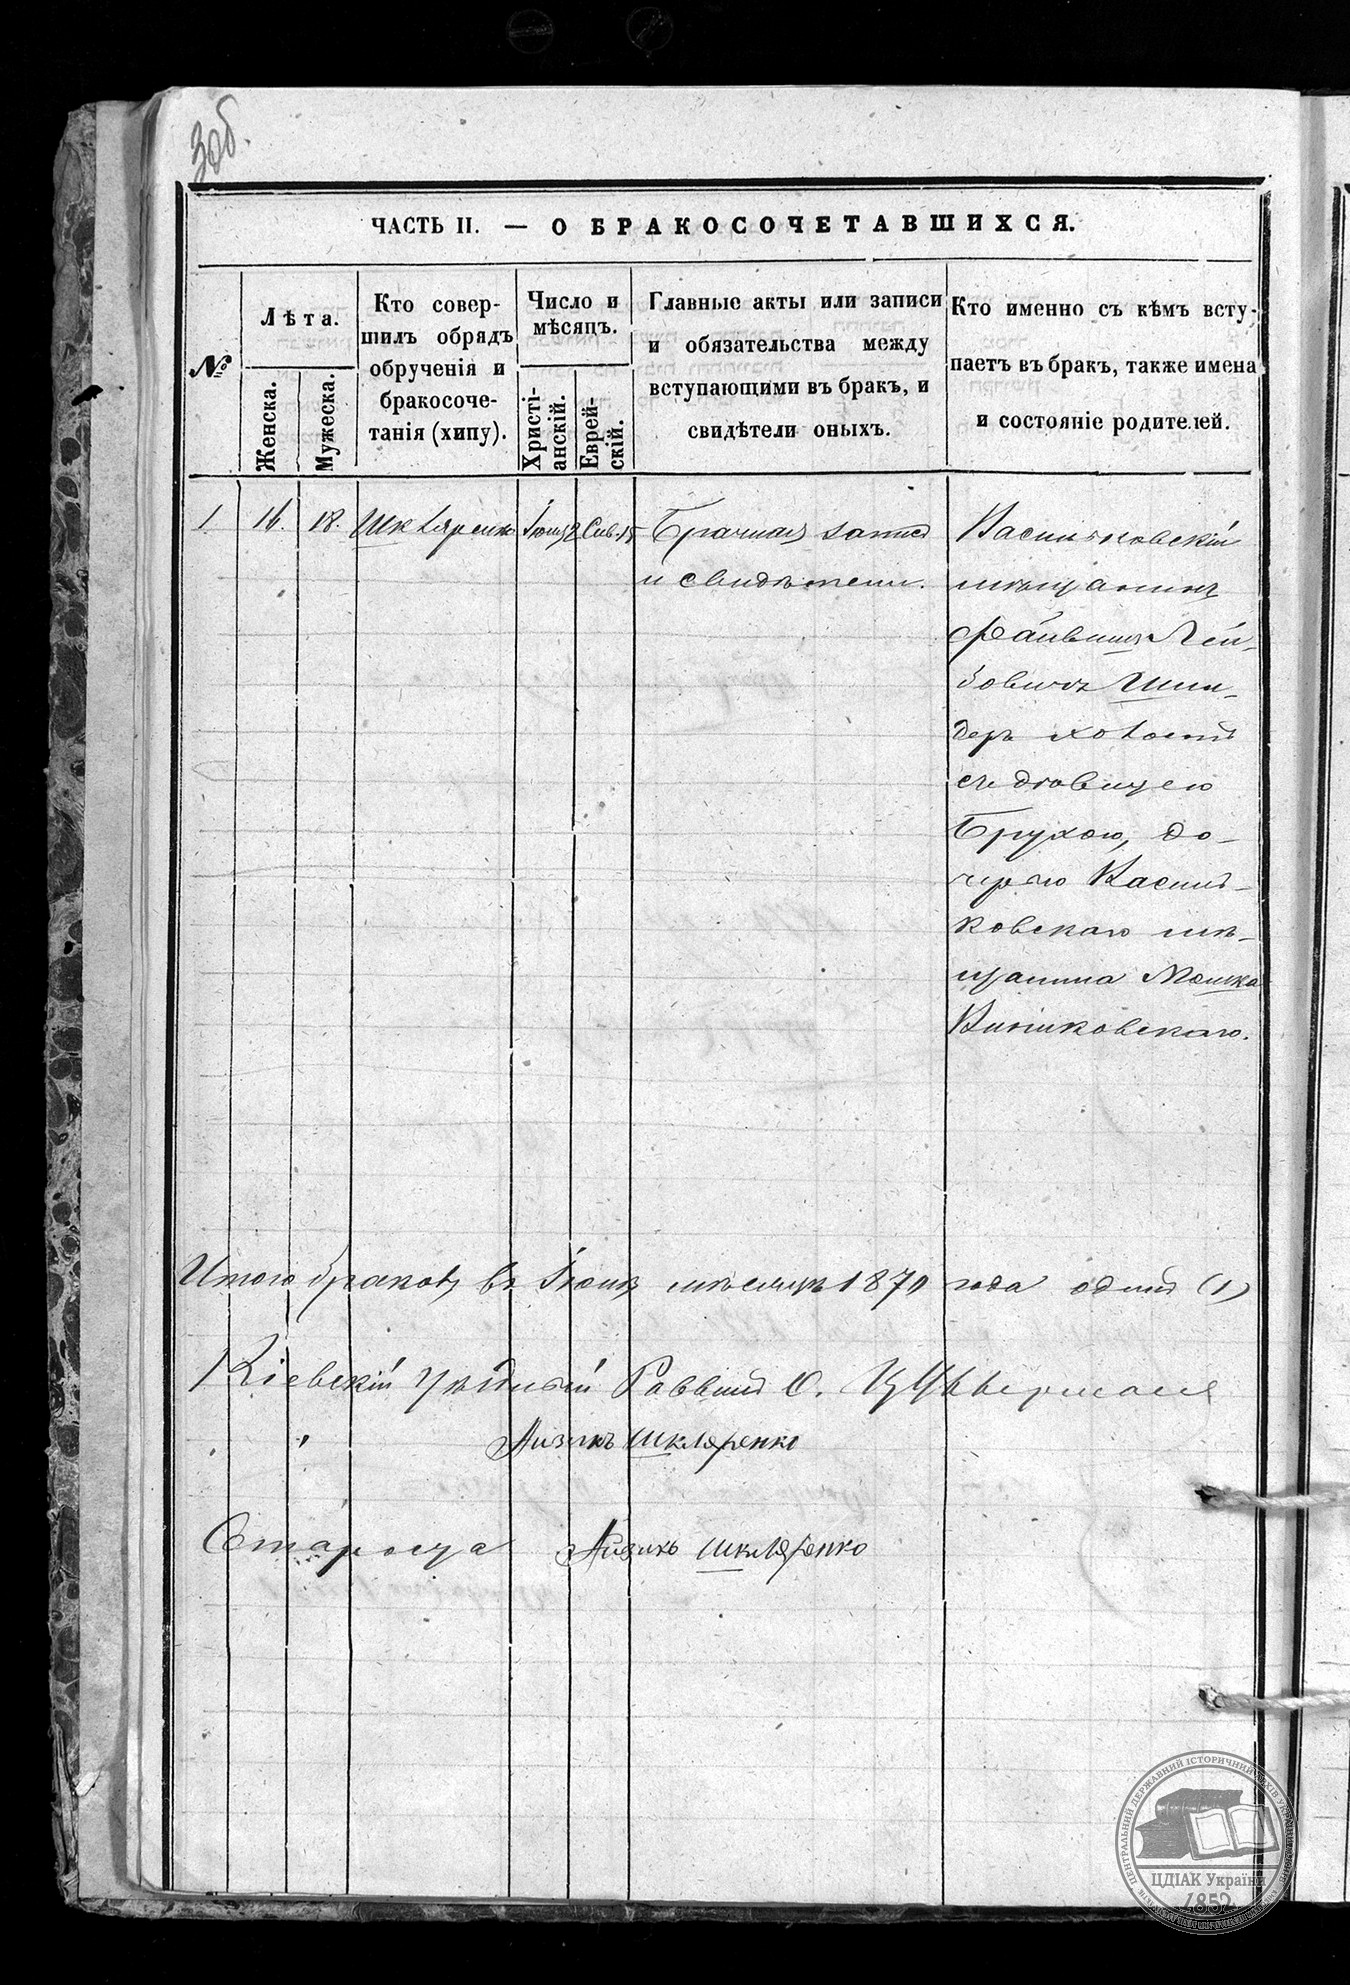 306.
ЧАСТЬ II. — О БРАКОСОЧЕТАВШИХСЯ.
№
Лѣта.
Женска.
Мужеска.
Кто совер-
шилъ обрядъ
обрученія и
бракосоче-
танія (хипу).
Число и
мѣсяцъ.
Христі-
анскій.
Еврей-
скій.
Главные акты или записи
и обязательства между
вступающими въ бракъ, и
свидѣтели оныхъ.
Кто именно съ кѣмъ всту-
паетъ въ бракъ, также имена
и состояніе родителей.
1
16.
18.
Шкляренко
Іюня
Сив. 15
Брачная запись
и свидѣтели.
Васильковскій
мѣщанинъ
Файвишъ Лей-
бовичъ Шни-
деръ холостъ
съ дѣвицею
Брухою, до-
черью Василь-
ковскаго мѣ-
щанина Мошка
Винниковскаго.
Итого браковъ въ Іюнѣ мѣсяцѣ 1870 года одинъ (1)
Кіевскій Уѣздный Раввинъ
Айзикъ Шкляренко
Староста Айзикъ Шкляренко
ЦЕНТРАЛЬНИЙ ДЕРЖАВНИЙ ІСТОРИЧНИЙ АРХІВ УКРАЇНИ
ЦДІАК України
1852